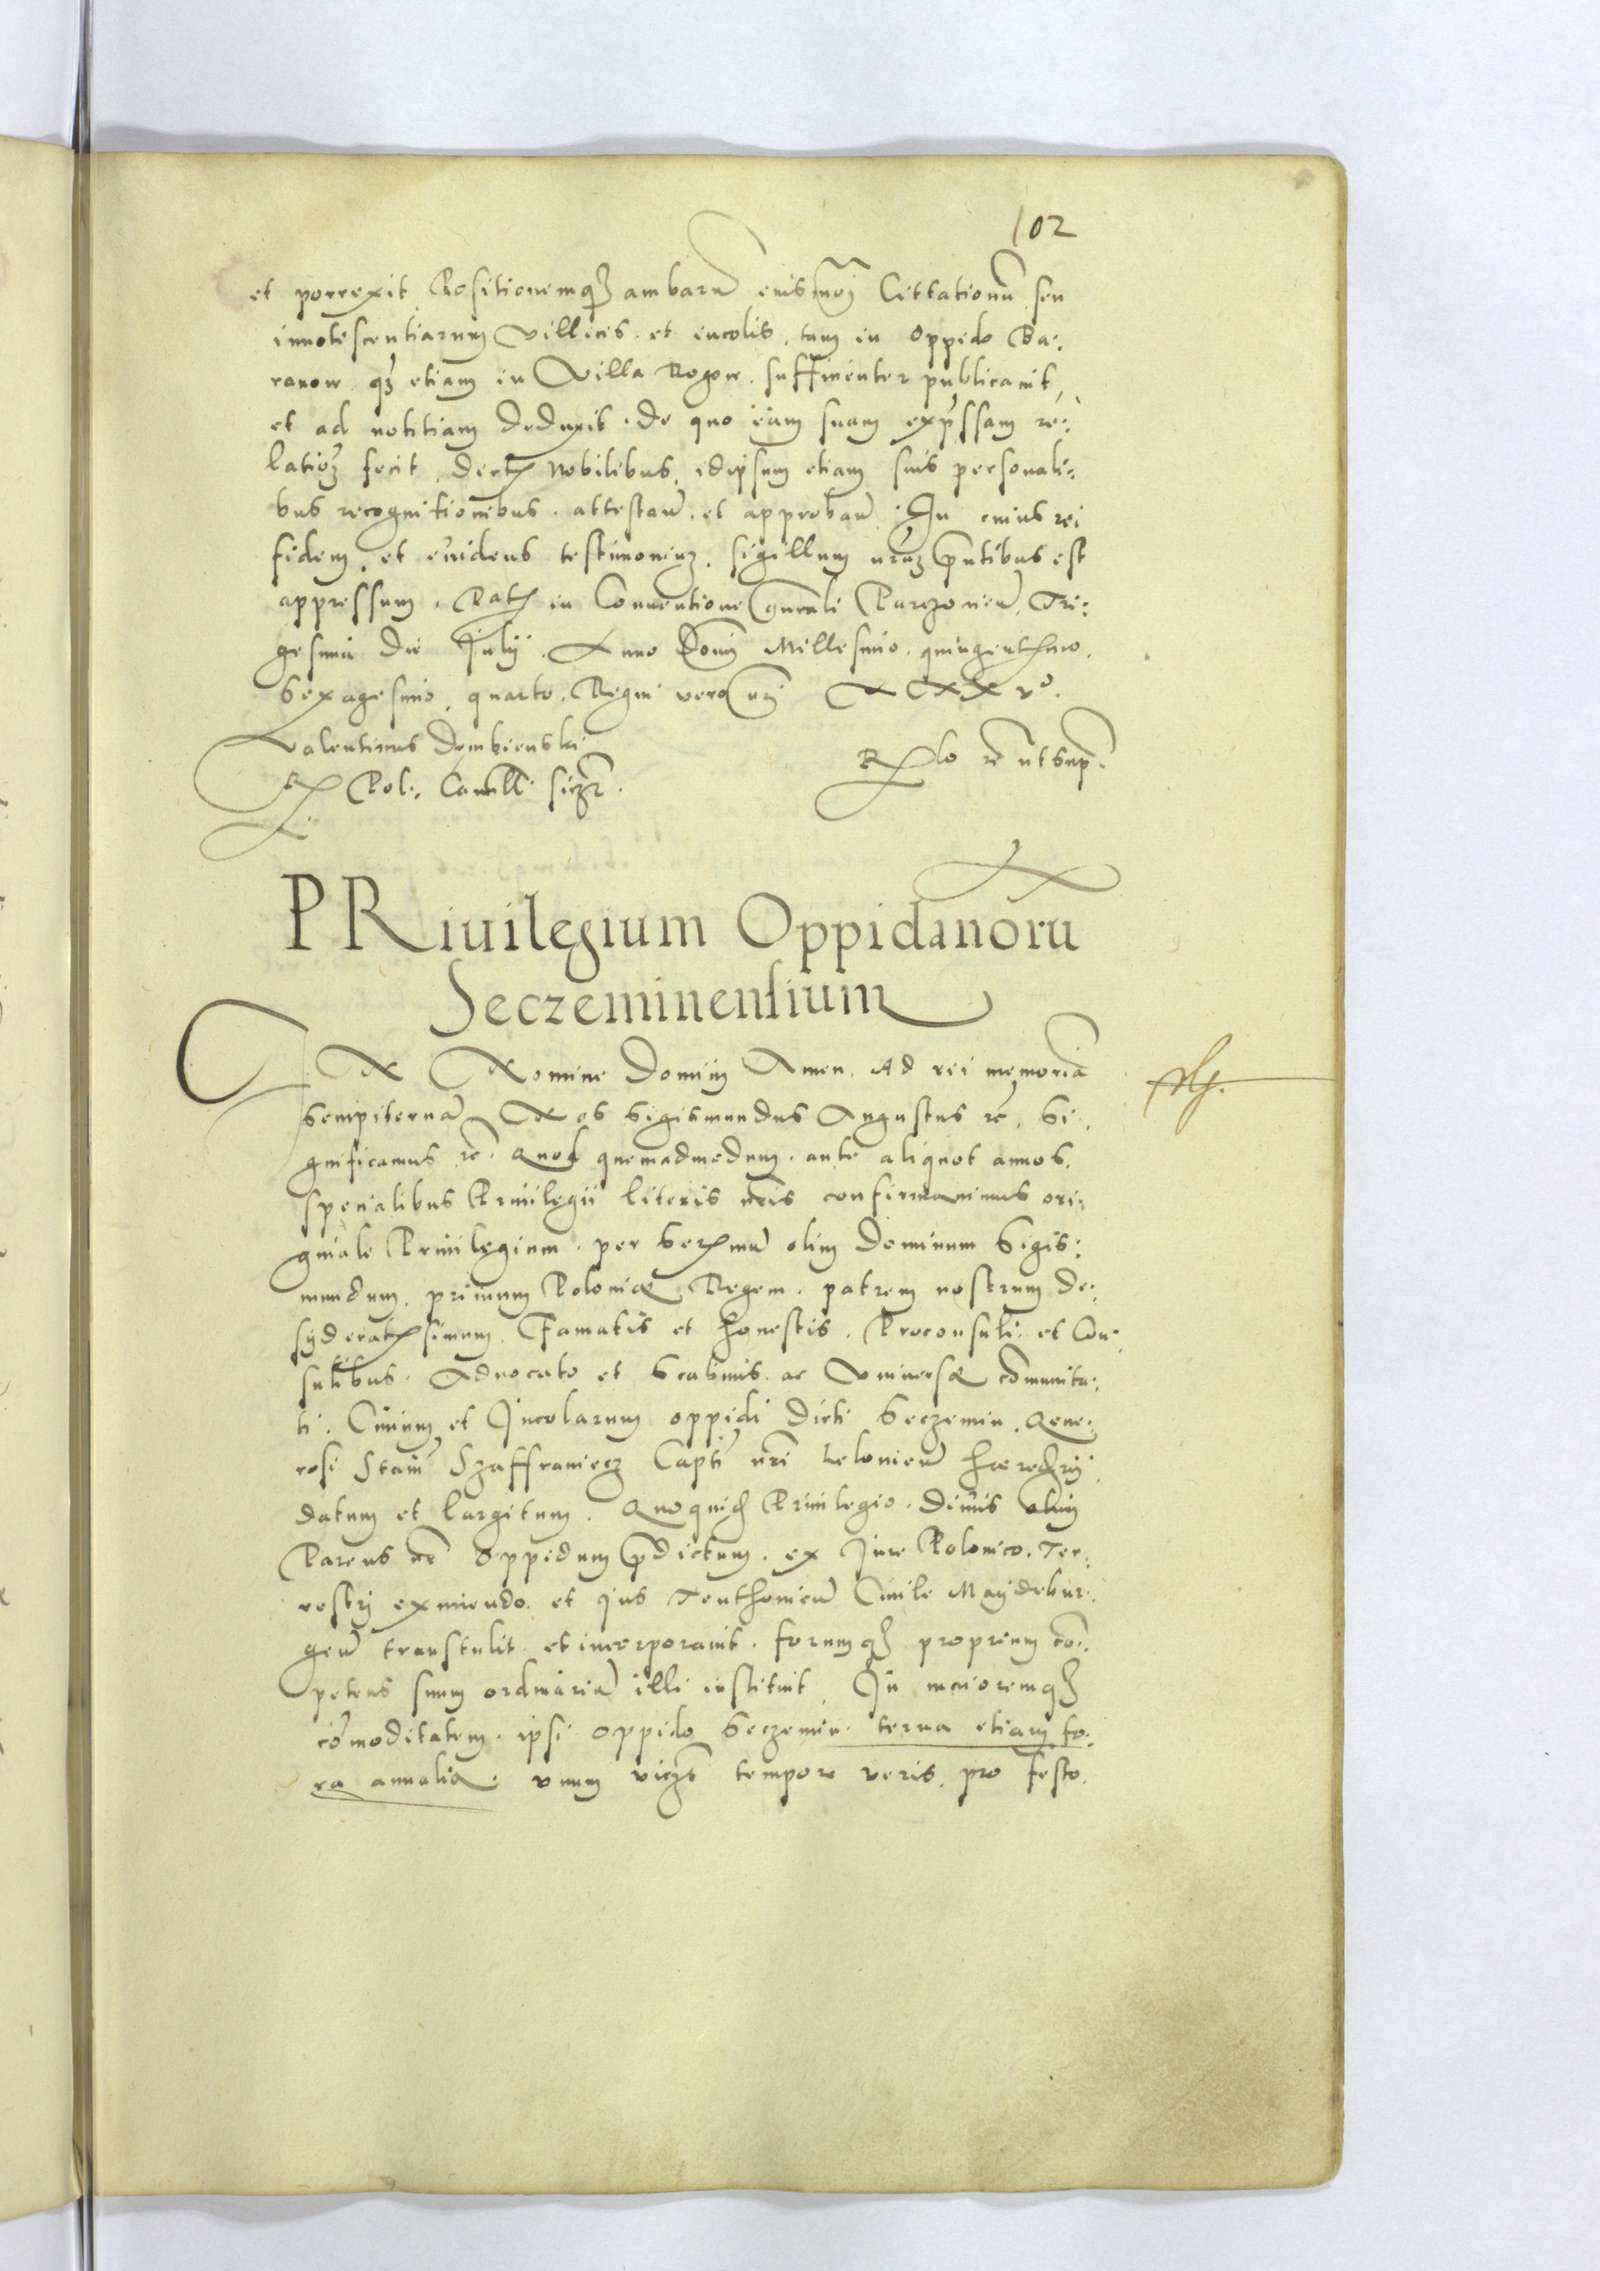 102
et porrexit Positionemq₃ ambarū eiusmōi Cittationū seu
innotescentiarum villicis. et incolis, tam in Oppido Ba:
ranow q₃ etiam in Villa Rogow. sufficienter publicauit,
et ad notitiam deduxit. de quo eām suam exp̄ssam re:
latiōȝ fecit, Nobilibus, idipsum etiam suis personali:
bus recognitionibus. attestan̄. et approban̄. In cuius rei
fidem, et euidens testimoniuȝ. sigillum nr̄uȝ p̄ntibus est
appressum. Dat in Conuentione gnāli Parczouien̄. Tri:
gesima die Julij. Anno Domī Millesimo. quingenthmo.
sexagesimo. quarto. Regni vero nrī XXXVº.
Valentinus Dembienski
R. Pol. Cancell. sſcz̄r.
Rlo rē vt sup.
PRiuilegium Oppidanorū
Seczeminensium
IN Nomine Domini Amen. Ad rei memoriā
sempiternā Nos Sigismundus Augustus rē. Si:
gnificamus rē. Quod quemadmodum. ante aliquot annos.
specialibus Priuilegii literis nrīs confirmauimus ori:
ginale Priuilegium. per Sermū olim Dominum Sigis:
mundum. primum Poloniæ Regem. patrem nostrum de:
syderatssimum. Famatis et honestis. Proconsuli. et Con:
sulibus. Aduocato et Scabinis. ac Vniuersæ cōmunita:
ti. Ciuium et Incolarum oppidi dicti Seczemin. Gene:
rosi Stani Szaffraniecz Capti nrī Lelouien̄ hæreditrij
datum et largitum. Quoquid Priuilegio. diuus olim
Parens nr̄ Oppidum p̄dictum. ex Jure Polonico. Ter:
restrj eximendo. et jus Teuthonicū Ciuile Maydebur:
gen̄ transtulit. et incorporauit. forumq₃ proprium cō:
petens suum ordinariū illi instituit. In maioremq₃
cōmoditatem. ipsi oppido Seczemin. terna etiam fo:
ra annalia. vnum vicz̄ tempore veris. pro festo.